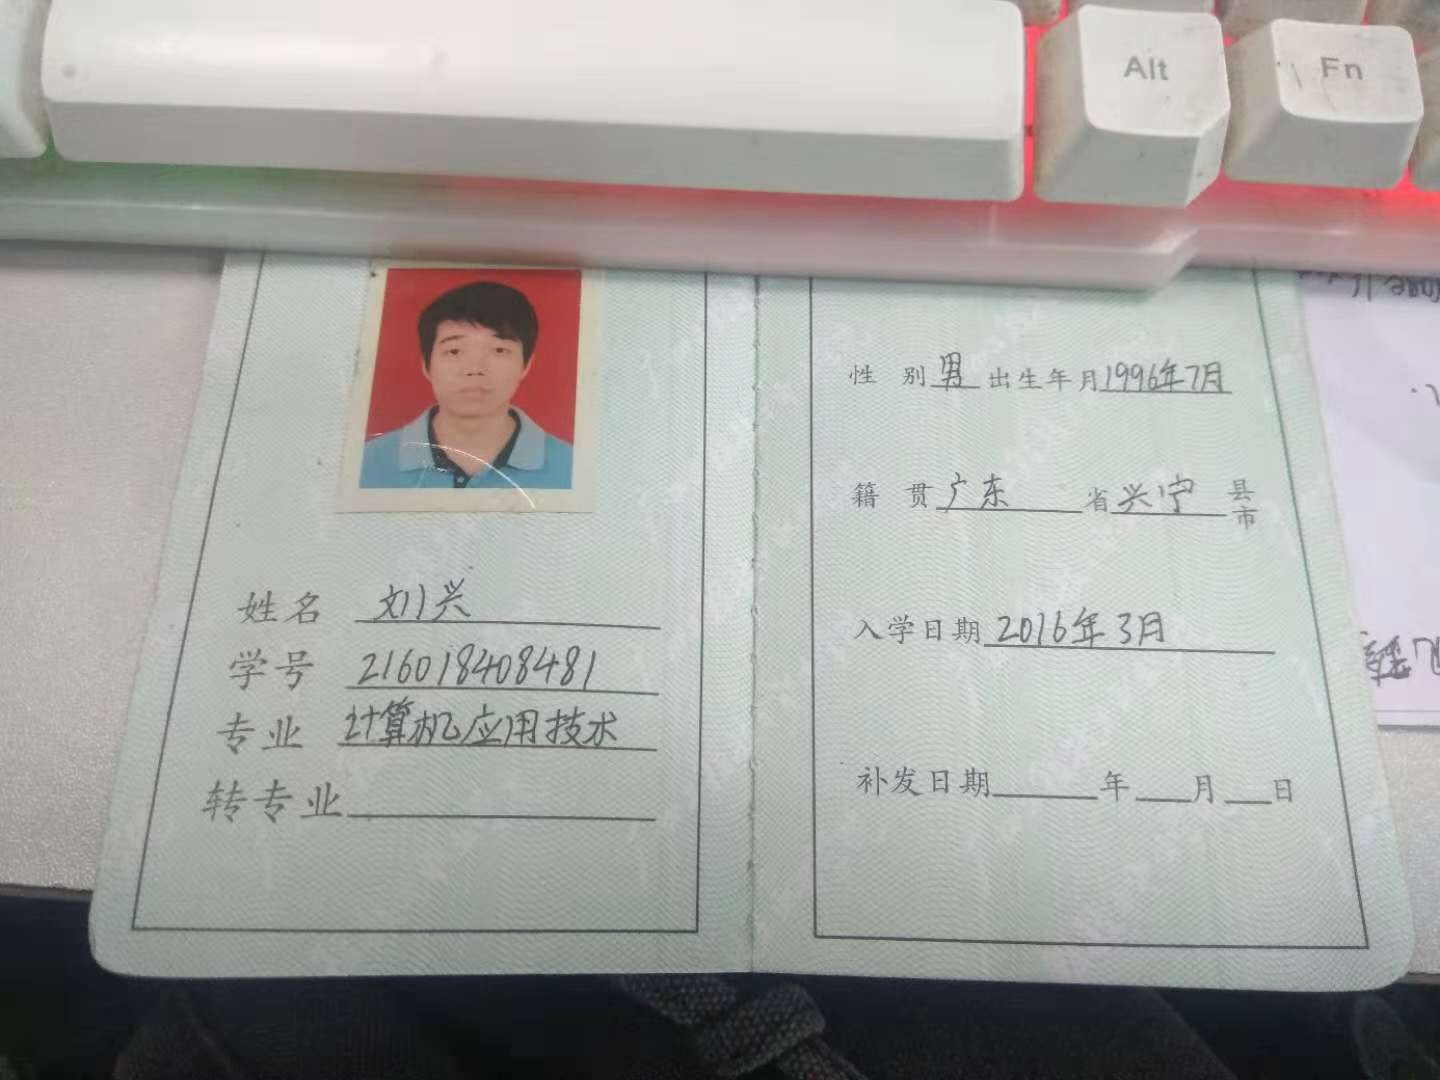 Alt
Fn
姓名 刘兴
学号 216018408481
专业 计算机应用技术
转专业
性别 男 出生年月 1996年7月
籍贯 广东 省 兴宁 县市
入学日期 2016年3月
补发日期 年 月 日